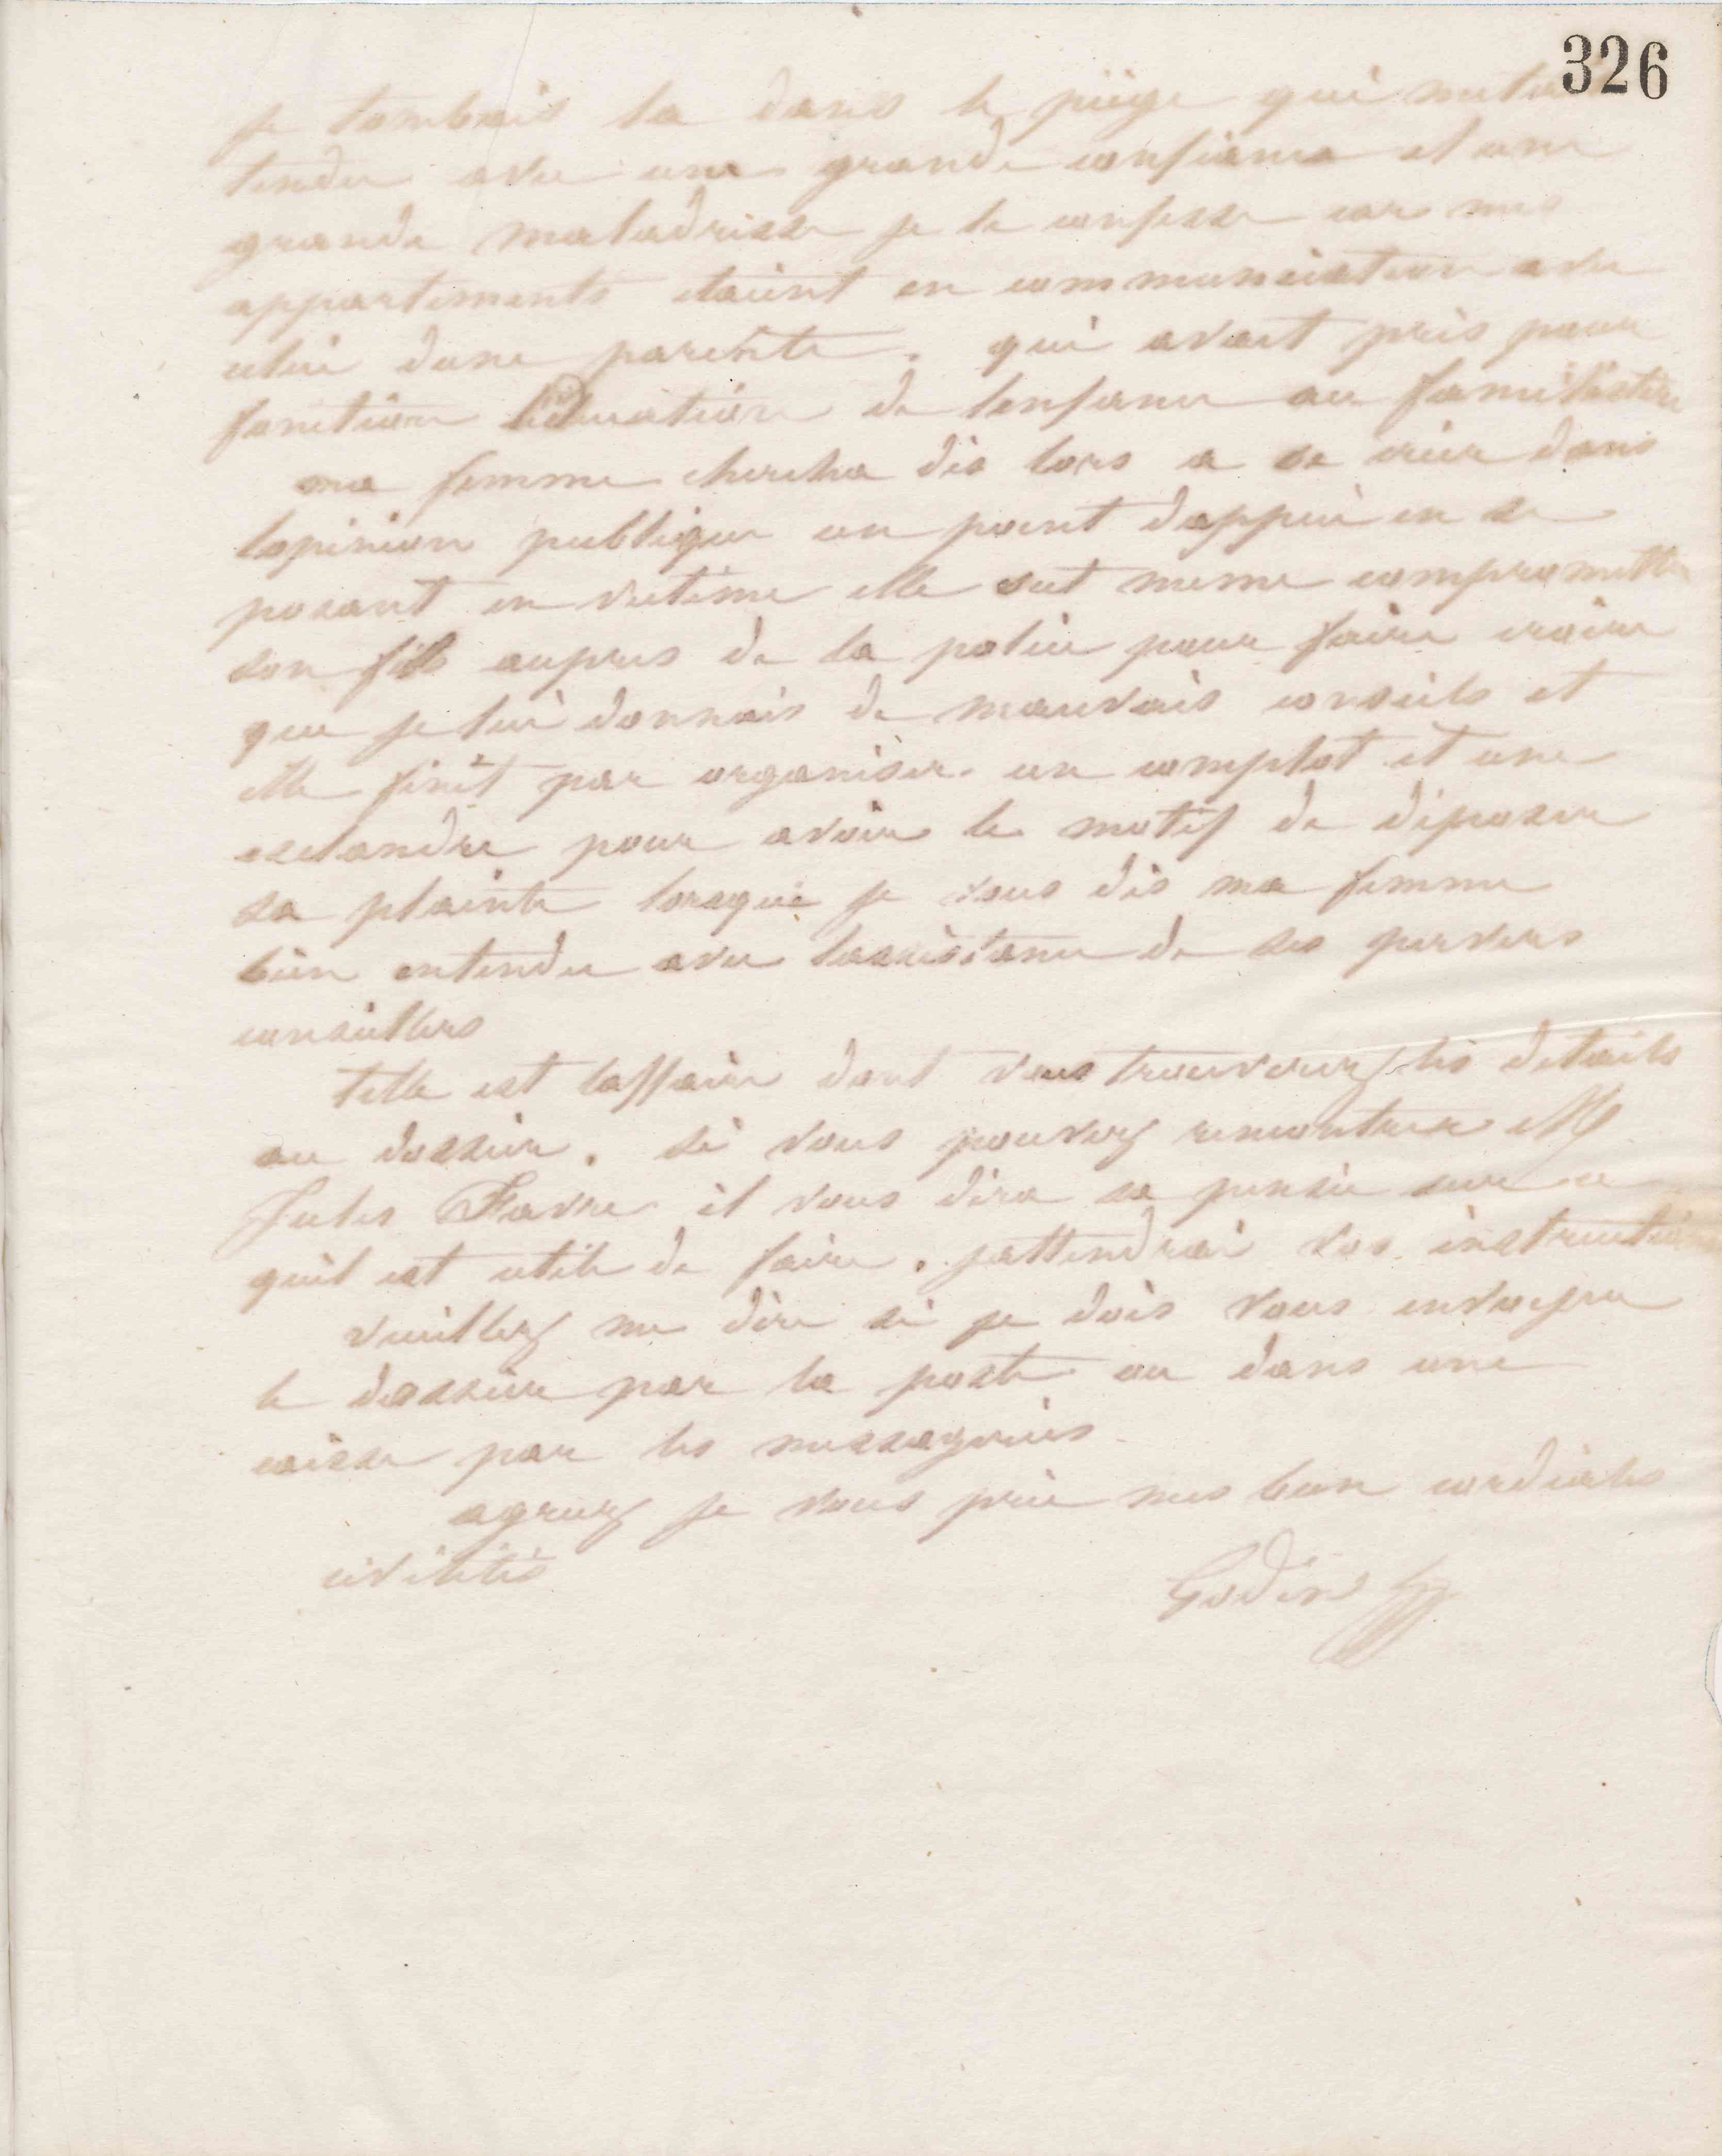 326
je tombais la dans le piège qui metait
tendu avec une grande confiance et une
grande maladresse je le confesse car mes
appartements etaient en communication avec
celui dune parente. qui avait pris pour
fonction l'éducation de lenfance au familistère
ma femme chercha dès lors a se créer dans
lopinion publique un point dappui en se
posant en victime elle sut meme compromettre
son fils aupres de la police pour faire croire
que je lui donnais de mauvais conseils et
elle finit par organiser un complot et une
esclandre pour avoir le motif de déposer
sa plainte lorsque je vous dis ma femme
bien entendu avec lassistance de ses pervers
conseillers
telle est laffaire dont vous trouverez les details
au dossier. si vous pouvez rencontrer Mr
Jules Favre il vous dira sa pensée sur ce
quil est utile de faire. jattendrai vos instructions
veuillez me dire si je dois vous envoyer
le dossier par la poste ou dans une
caisse par les messageries
agreez je vous prie mes bien cordiales
civilités
Godin